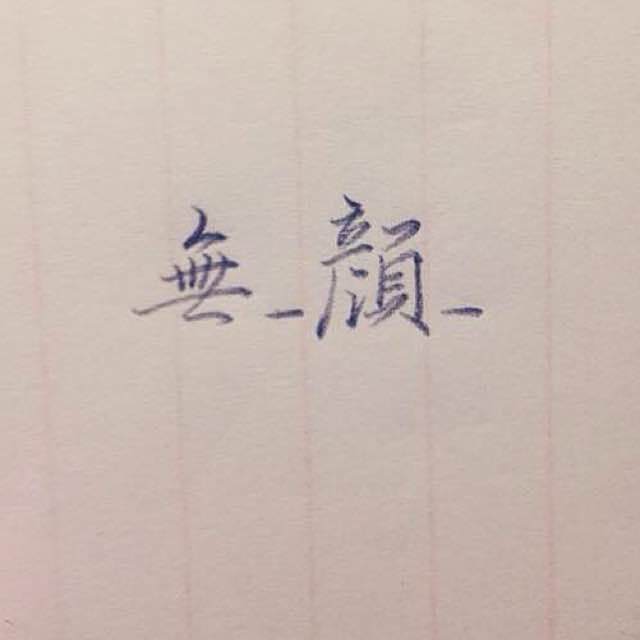 無_顏_